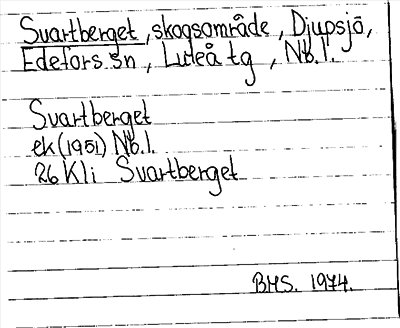 Svartberget, skogsområde, Djupsjö,
Edefors sn, Luleå tg, Nb.l.
Svartberget
ek (1951) Nb.l.
26 Kli Svartberget
BHS. 1974.